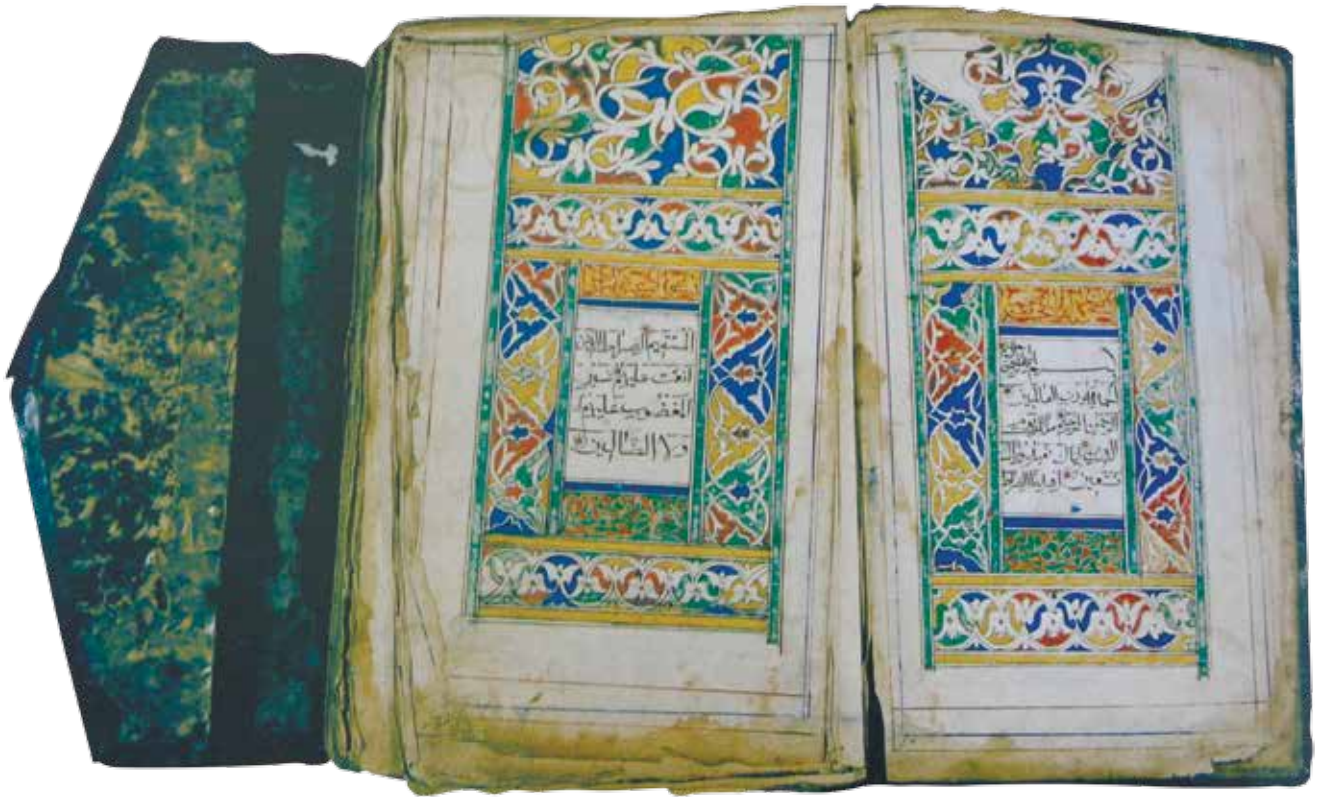 بسم الله الرحمن الرحيم
الحمد لله رب العالمين
الرحمن الرحيم ملك يوم
الدين اياك نعبد واياك
نستعين اهدنا الصراط
المستقيم صراط الذين
انعمت عليهم غير
المغضوب عليهم
ولا الضالين